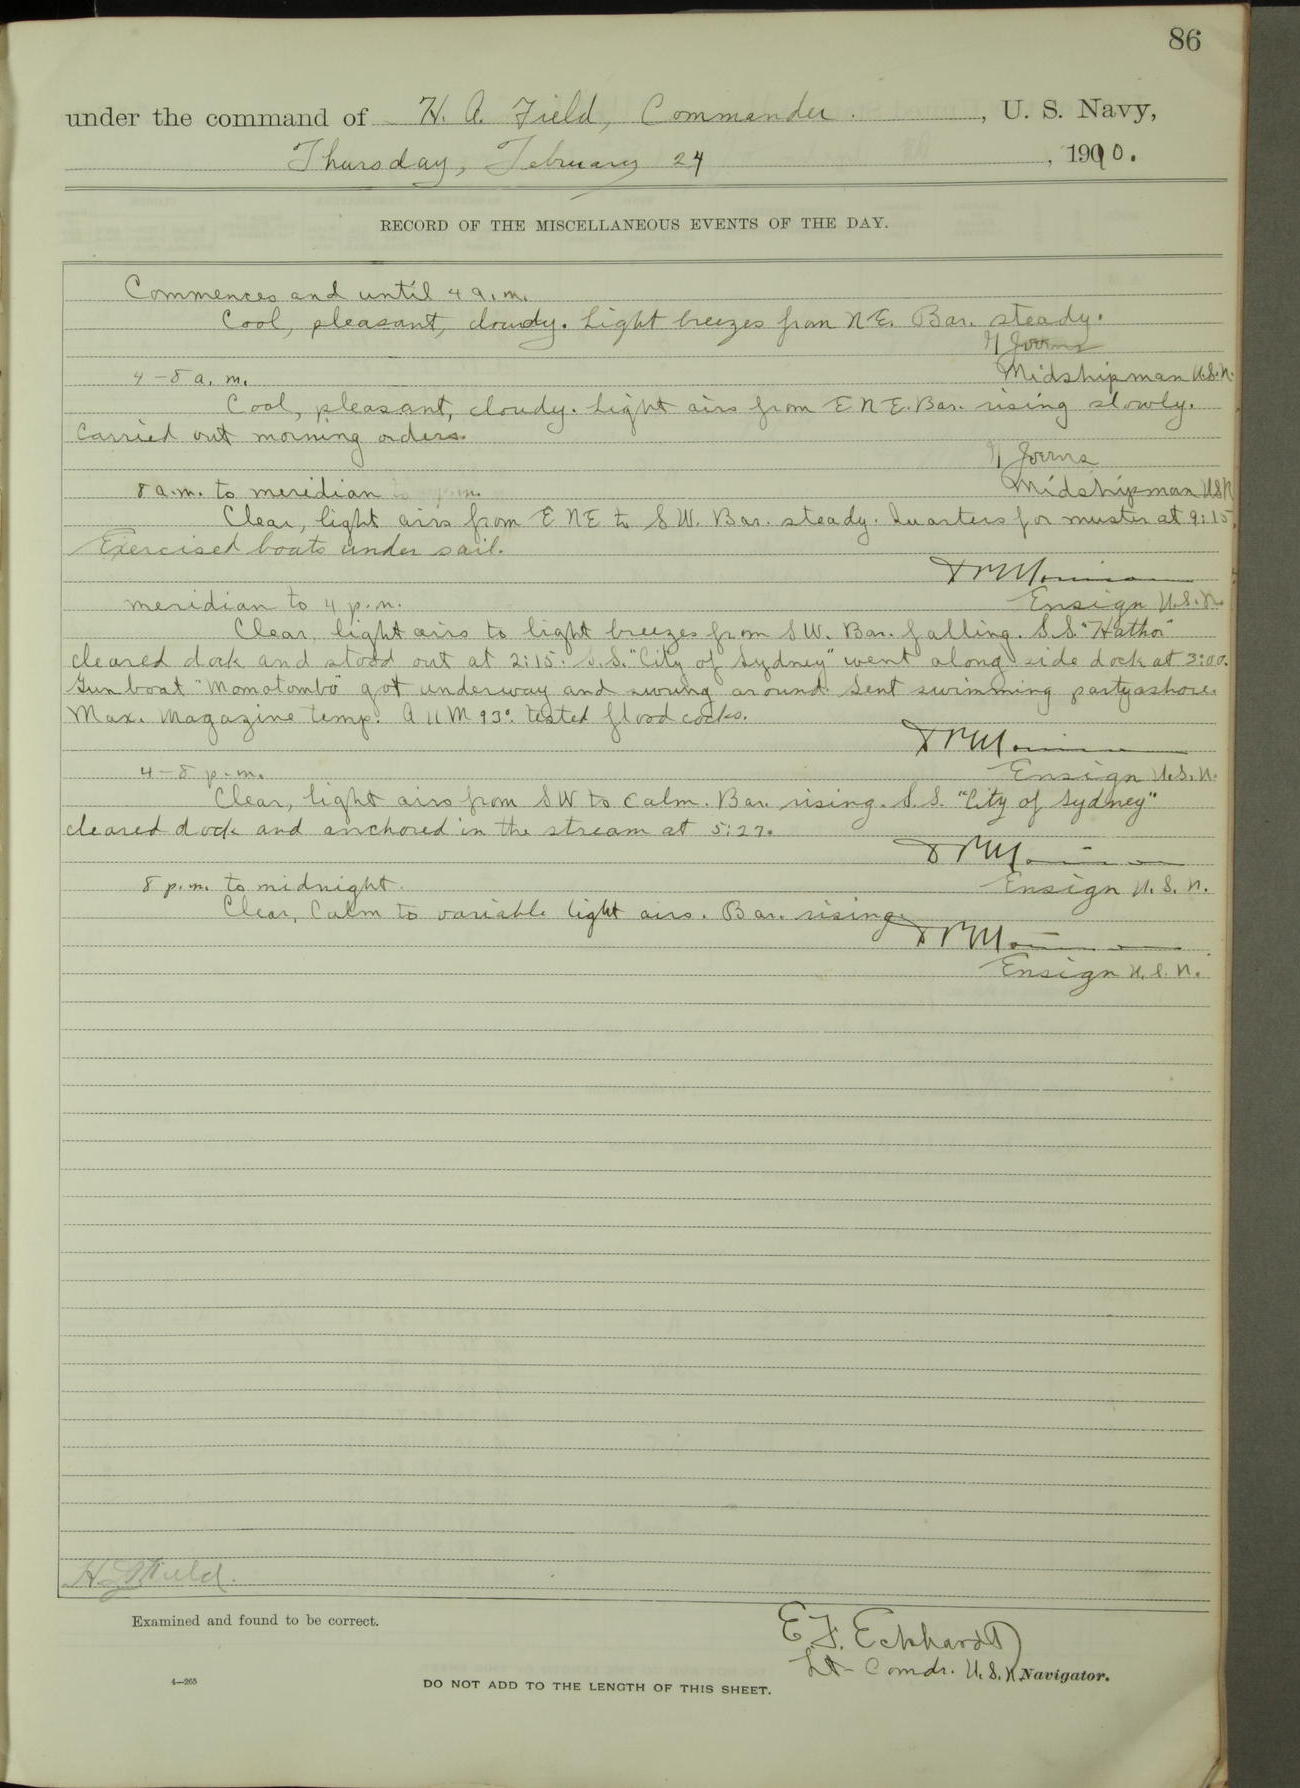 86
under the command of H. A. Field, Commander, U. S. Navy,
Thursday, February 24, 1910.
RECORD OF THE MISCELLANEOUS EVENTS OF THE DAY.
Commences and until 4 a. m.
Cool, pleasant, cloudy. Light breezes from N E. Bar. steady.
Joerns
Midshipman U.S.N.
4-8 a. m.
Cool, pleasant, cloudy. Light airs from E N E. Bar. rising slowly.
Carried out morning orders.
Joerns
Midshipman USN
8 a.m. to meridian
Clear, light airs from E NE to S W. Bar. steady. Quarters for muster at 9:15.
Exercised boats under sail.
Ensign U.S.N.
meridian to 4 p.m.
Clear, light airs to light breezes from SW. Bar. falling. S.S. "Hathor"
cleared dock and stood out at 2:15. S.S. "City of Sydney" went along side dock at 3:00.
Gunboat "Momotombo" got underway and swung around. Sent swimming party ashore.
Max. Magazine temp. A 11 M 93°. tested flood cocks.
Ensign U.S.N.
4-8 p.m.
Clear, light airs from SW to calm. Bar. rising. S.S. "City of Sydney"
cleared dock and anchored in the stream at 5:27.
Ensign U. S. N.
8 p.m. to midnight.
Clear, Calm to variable light airs. Bar. rising.
Ensign U. S. N.
H A Field.
Examined and found to be correct.
E. F. Eckhardt
Lt-Comdr. U. S. N. Navigator.
4—265
DO NOT ADD TO THE LENGTH OF THIS SHEET.